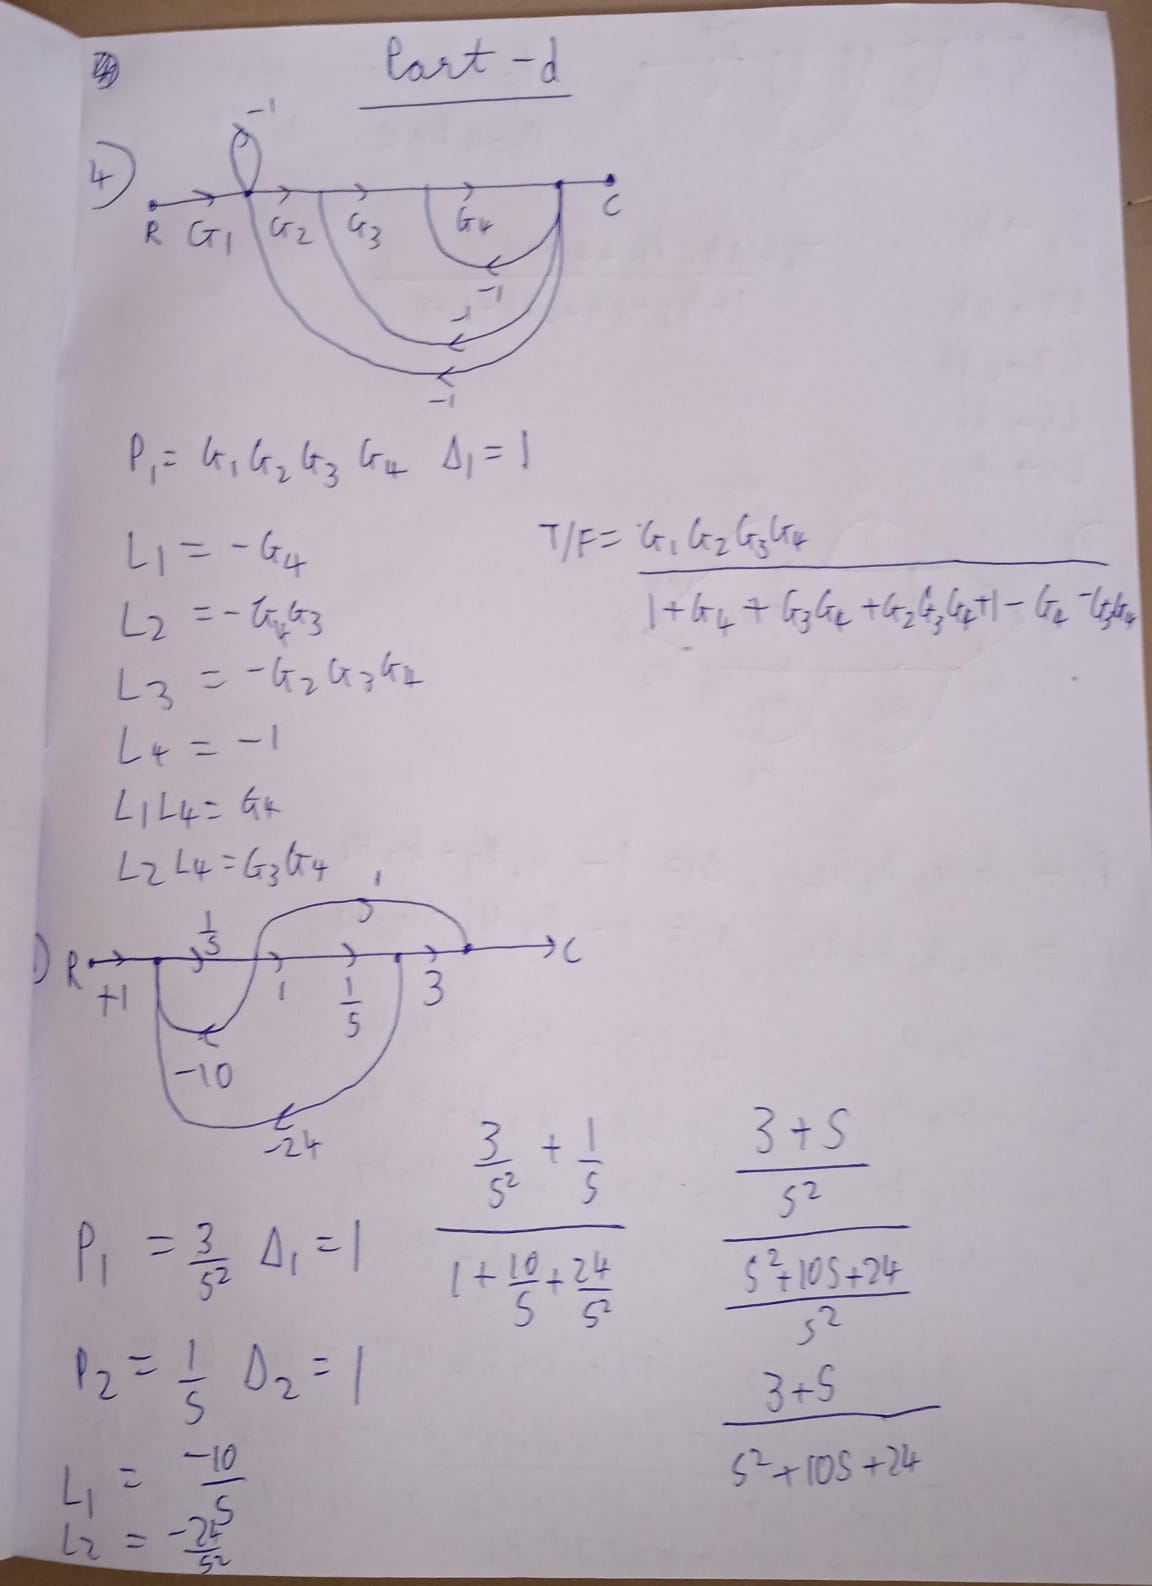 Part - d
4)
-1
R G₁ G₂ G₃ G₄ C
-1
-1
-1
P₁ = G₁ G₂ G₃ G₄ Δ₁ = 1
L1 = - G₄
L2 = - G₄G₃
L3 = - G₂ G₃ G₄
L4 = - 1
L1 L4 = G₄
L2 L4 = G₃G₄
T/F = G₁ G₂ G₃G₄ / 1 + G₄ + G₃G₄ + G₂G₃G₄ + 1 - G₄ - G₃G₄
1
R +1 1/S 1 1/S 3 C
-10
-24
P₁ = 3/S² Δ₁ = 1
P₂ = 1/S Δ₂ = 1
L₁ = -10/S
L₂ = -24/S²
3/S² + 1/S
1 + 10/S + 24/S²
3 + S
S²
S² + 10S + 24
S²
3 + S
S² + 10S + 24